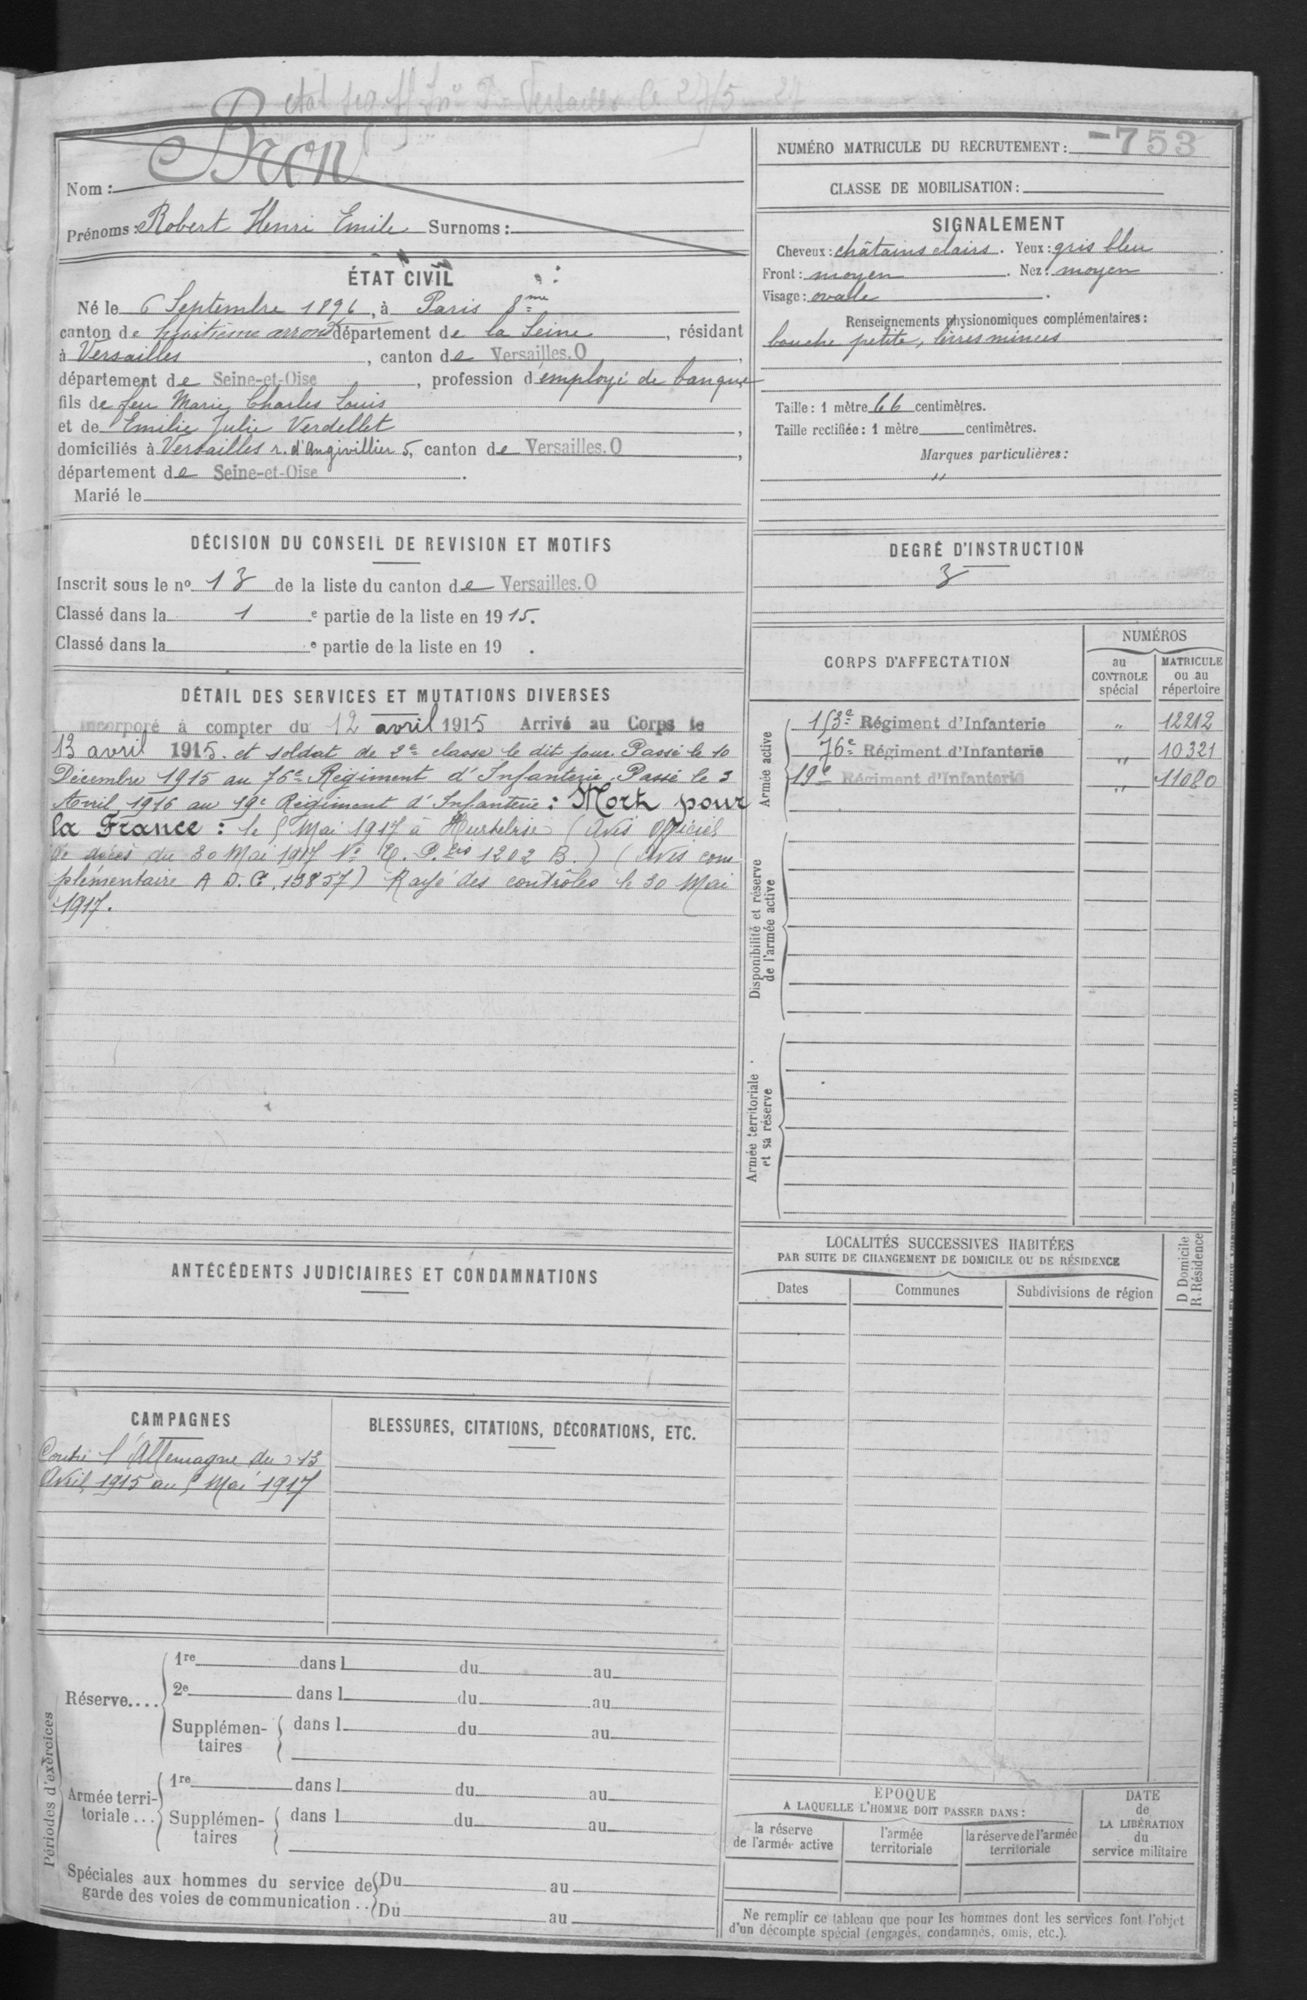 Versailles le 27/5 27
NUMÉRO MATRICULE DU RECRUTEMENT : 753
CLASSE DE MOBILISATION :
Nom : Bron
Prénoms : Robert Henri Emile Surnoms :
ÉTAT CIVIL
Né le 6 Septembre 1896, à Paris 8me
canton de huitième arrondt département de la Seine, résidant
à Versailles, canton de Versailles.O,
département de Seine-et-Oise, profession d'employé de banque
fils de feu Marie Charles Louis
et de Emilie Julie Verdellet,
domiciliés à Versailles r. d'Angivillier 5, canton de Versailles.O,
département de Seine-et-Oise.
Marié le
SIGNALEMENT
Cheveux : châtains clairs. Yeux : gris bleu.
Front : moyen. Nez : moyen.
Visage : ovale.
Renseignements physionomiques complémentaires :
bouche petite, lèvres minces
Taille : 1 mètre 66 centimètres.
Taille rectifiée : 1 mètre centimètres.
Marques particulières :
"
DÉCISION DU CONSEIL DE REVISION ET MOTIFS
Inscrit sous le no 13 de la liste du canton de Versailles.O
Classé dans la 1 e partie de la liste en 1915.
Classé dans la e partie de la liste en 19 .
DEGRÉ D'INSTRUCTION
3
DÉTAIL DES SERVICES ET MUTATIONS DIVERSES
Incorporé à compter du 12 avril 1915 Arrivé au Corps le
13 avril 1915. et soldat de 2e classe le dit jour. Passé le 10
Décembre 1915 au 76e Régiment d'Infanterie. Passé le 3
Avril 1916 au 19e Régiment d'Infanterie : Mort pour
la France : le 5 Mai 1917 à Hurtebise (Avis Officiel
de décès du 30 Mai 1917 No 1202 B.) (Avis com
plémentaire A D.C. 13857) Rayé des contrôles le 30 Mai
1917.
CORPS D'AFFECTATION
NUMÉROS
au CONTROLE spécial
MATRICULE ou au répertoire
Armée active
153e Régiment d'Infanterie " 12212
76e Régiment d'Infanterie " 10321
19e Régiment d'Infanterie " 11080
Disponibilité et réserve de l'armée active
Armée territoriale et sa réserve
LOCALITÉS SUCCESSIVES HABITÉES
PAR SUITE DE CHANGEMENT DE DOMICILE OU DE RÉSIDENCE
Dates Communes Subdivisions de région
D Domicile
R Résidence
ANTÉCÉDENTS JUDICIAIRES ET CONDAMNATIONS
CAMPAGNES
Contre l'Allemagne du 13
Avril 1915 au 5 Mai 1917
BLESSURES, CITATIONS, DÉCORATIONS, ETC.
Périodes d'exercices
Réserve....
1re dans l du au
2e dans l du au
Supplémen-
taires
dans l du au
Armée terri-
toriale...
1re dans l du au
Supplémen-
taires
dans l du au
Spéciales aux hommes du service de
garde des voies de communication ..
Du au
Du au
ÉPOQUE
A LAQUELLE L'HOMME DOIT PASSER DANS :
la réserve
de l'armée active
l'armée
territoriale
la réserve de l'armée
territoriale
DATE
de
LA LIBÉRATION
du
service militaire
Ne remplir ce tableau que pour les hommes dont les services font l'objet
d'un décompte spécial (engagés, condamnés, omis, etc.).